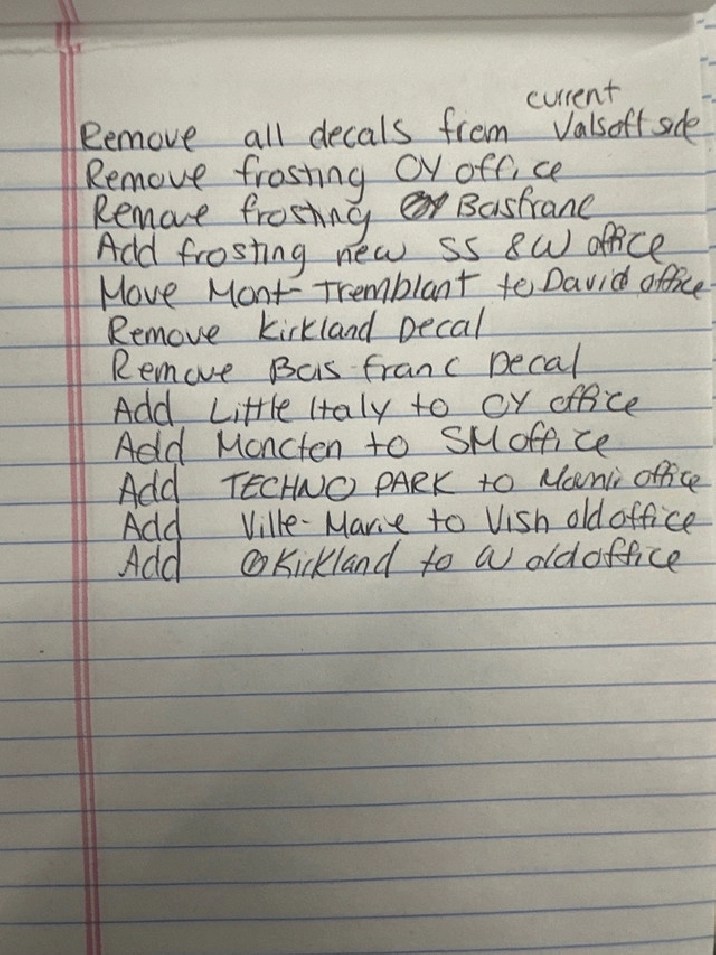 current
Remove all decals from Valsoft side
Remove frosting CY office
Remove frosting Boisfranc
Add frosting new SS & W office
Move Mont-Tremblant to David office
Remove Kirkland Decal
Remove Bois franc Decal
Add Little Italy to CY office
Add Moncton to SM office
Add TECHNO PARK to office
Add Ville-Marie to Vish old office
Add Kirkland to W old office